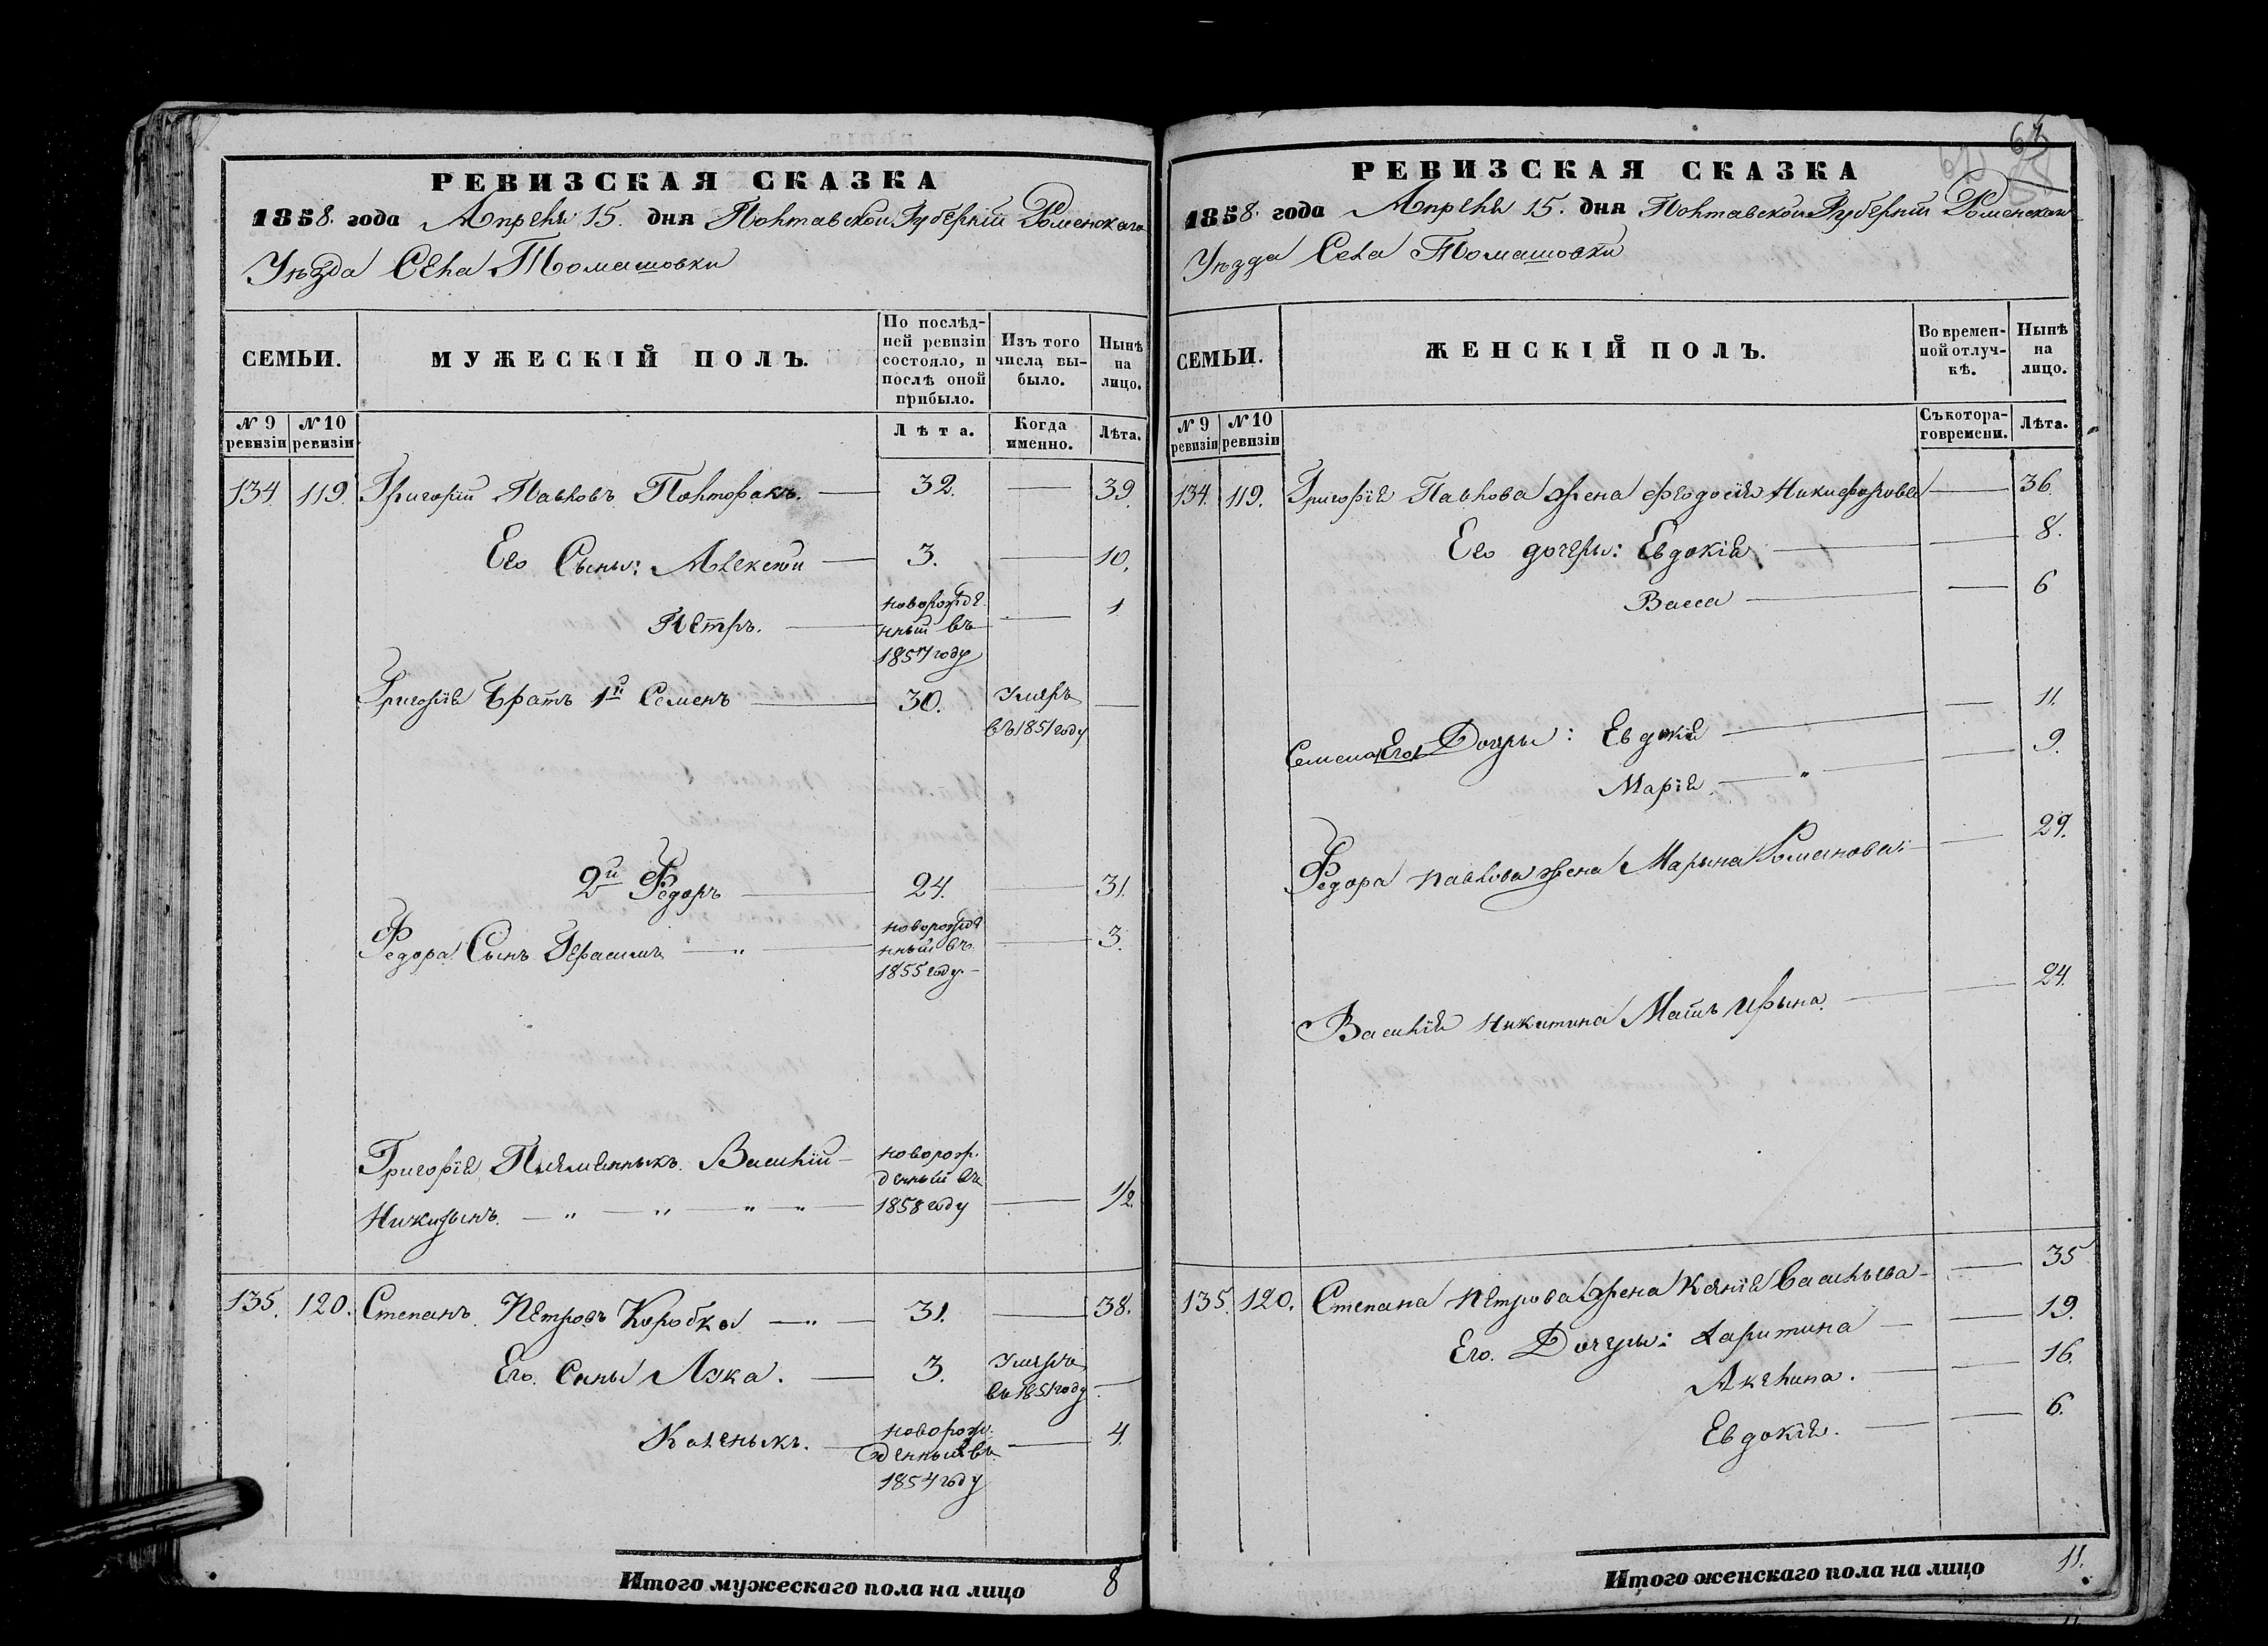 РЕВИЗСКАЯ СКАЗКА
1858. года Апреля 15. дня Полтавской Губерніи Роменскаго
Уѣзда Села Томашовки
СЕМЬИ.
МУЖЕСКІЙ ПОЛЪ.
По послѣд-
ней ревизіи
состояло, и
послѣ оной
прибыло.
Изъ того
числа вы-
было.
Нынѣ
на
лицо.
№ 9
ревизіи
№ 10
ревизіи
Лѣта.
Когда
именно.
Лѣта.
134 119. Григорій Павловъ Полторакъ. — 32. — 39.
Его Сыны: Алексѣй — 3. — 10.
Петръ. — новорожде-
нный въ
1857 году — 1
Григорія Братъ 1й Семенъ — 30. умеръ
въ 1851 году —
2й Федоръ — 24. — 31.
Федора Сынъ Герасимъ — новорожде
нный въ
1855 году — 3.
Григорія Племянныкъ Василій — новорож-
денный въ
Никитынъ. — 1858 году — 1/2.
135. 120. Степанъ Петровъ Коробка — 31. — 38.
Его Сыны Лука. — 3. умеръ
въ 1851 году —
Каленыкъ. — новорож-
денный въ
1854 году — 4.
Итого мужескаго пола на лицо 8
РЕВИЗСКАЯ СКАЗКА
1858. года Апреля 15. дня Полтавской Губерніи Роменскаго
Уѣзда Села Томашовки
СЕМЬИ.
ЖЕНСКІЙ ПОЛЪ.
Во времен-
ной отлуч-
кѣ.
Нынѣ
на
лицо.
№ 9
ревизіи
№ 10
ревизіи
Съ котора-
го времени.
Лѣта.
134. 119. Григорія Павлова жена Феодосія Никифорова — 36.
Его дочеры: Евдокія — 8.
Васса — 6
Семена Его Дочеры: Евдокія — 11.
Марія — 9.
Федора Павлова жена Марына Романова — 29.
Василія Никитина Мать Ирына. — 24.
135. 120. Степана Петрова жена Ксенія Васильева — 35
Его. Дочеры: Харитина — 19.
Акелина. — 16.
Евдокія. — 6.
Итого женскаго пола на лицо 11.